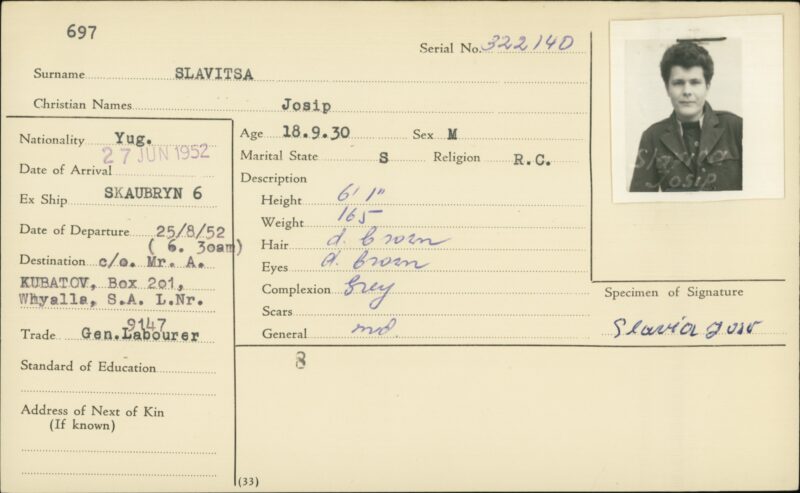 697
Serial No. 322140
Surname SLAVITSA
Christian Names Josip
Nationality Yug.
27 JUN 1952
Date of Arrival
Ex Ship SKAUBRYN 6
Date of Departure 25/8/52
( 6. 30am)
Destination c/o. Mr. A.
KUBATOV, Box 201,
Whyalla, S.A. L.Nr.
9147
Trade Gen.Labourer
Standard of Education
Address of Next of Kin
(If known)
Age 18.9.30 Sex M
Marital State S Religion R.C.
Description
Height 6' 1"
Weight 165
Hair d. brown
Eyes d. brown
Complexion Grey
Scars
General
8
(33)
Josip
Specimen of Signature